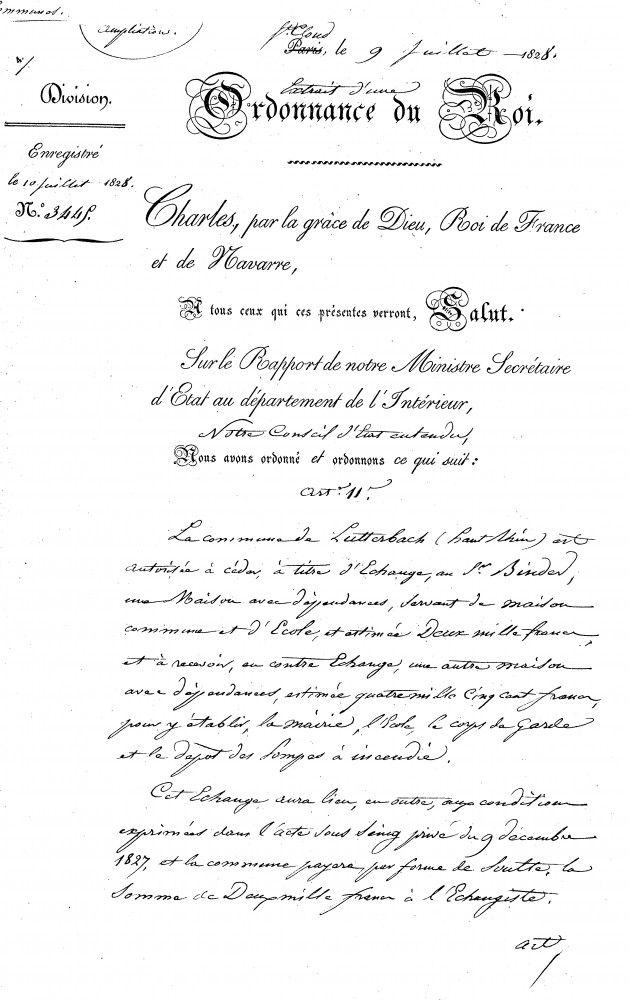 Communes.
ampliation.
St Cloud
Paris, le 9 Juillet 1828.
Division.
Enregistré
le 10 Juillet 1828.
N.º 3445.
Extrait d'une
Ordonnance du Roi.
Charles, par la grâce de Dieu, Roi de France
et de Navarre,
A tous ceux qui ces présentes verront, Salut.
Sur le Rapport de notre Ministre Secrétaire
d'Etat au département de l'Intérieur,
Notre Conseil d'Etat entendu,
Nous avons ordonné et ordonnons ce qui suit:
art. 11.
La commune de Lutterbach (haut Rhin) est
autorisée à céder, à titre d'Echange, au Sr. Binder,
une Maison avec dépendances, servant de maison
commune et d'Ecole, et estimée Deux mille francs,
et à recevoir, en contre Echange, une autre maison
avec dépendances, estimée quatre mille Cinq cent francs,
pour y établir, la mairie, l'Ecole, le corps de Garde
et le dépôt des Pompes à incendie.
Cet Echange aura lieu, en outre, aux conditions
exprimées dans l'acte sous Seing privé du 9 décembre
1827, et la commune payera, par forme de Soulte, la
Somme de Deux mille francs à l'Echangiste.
art